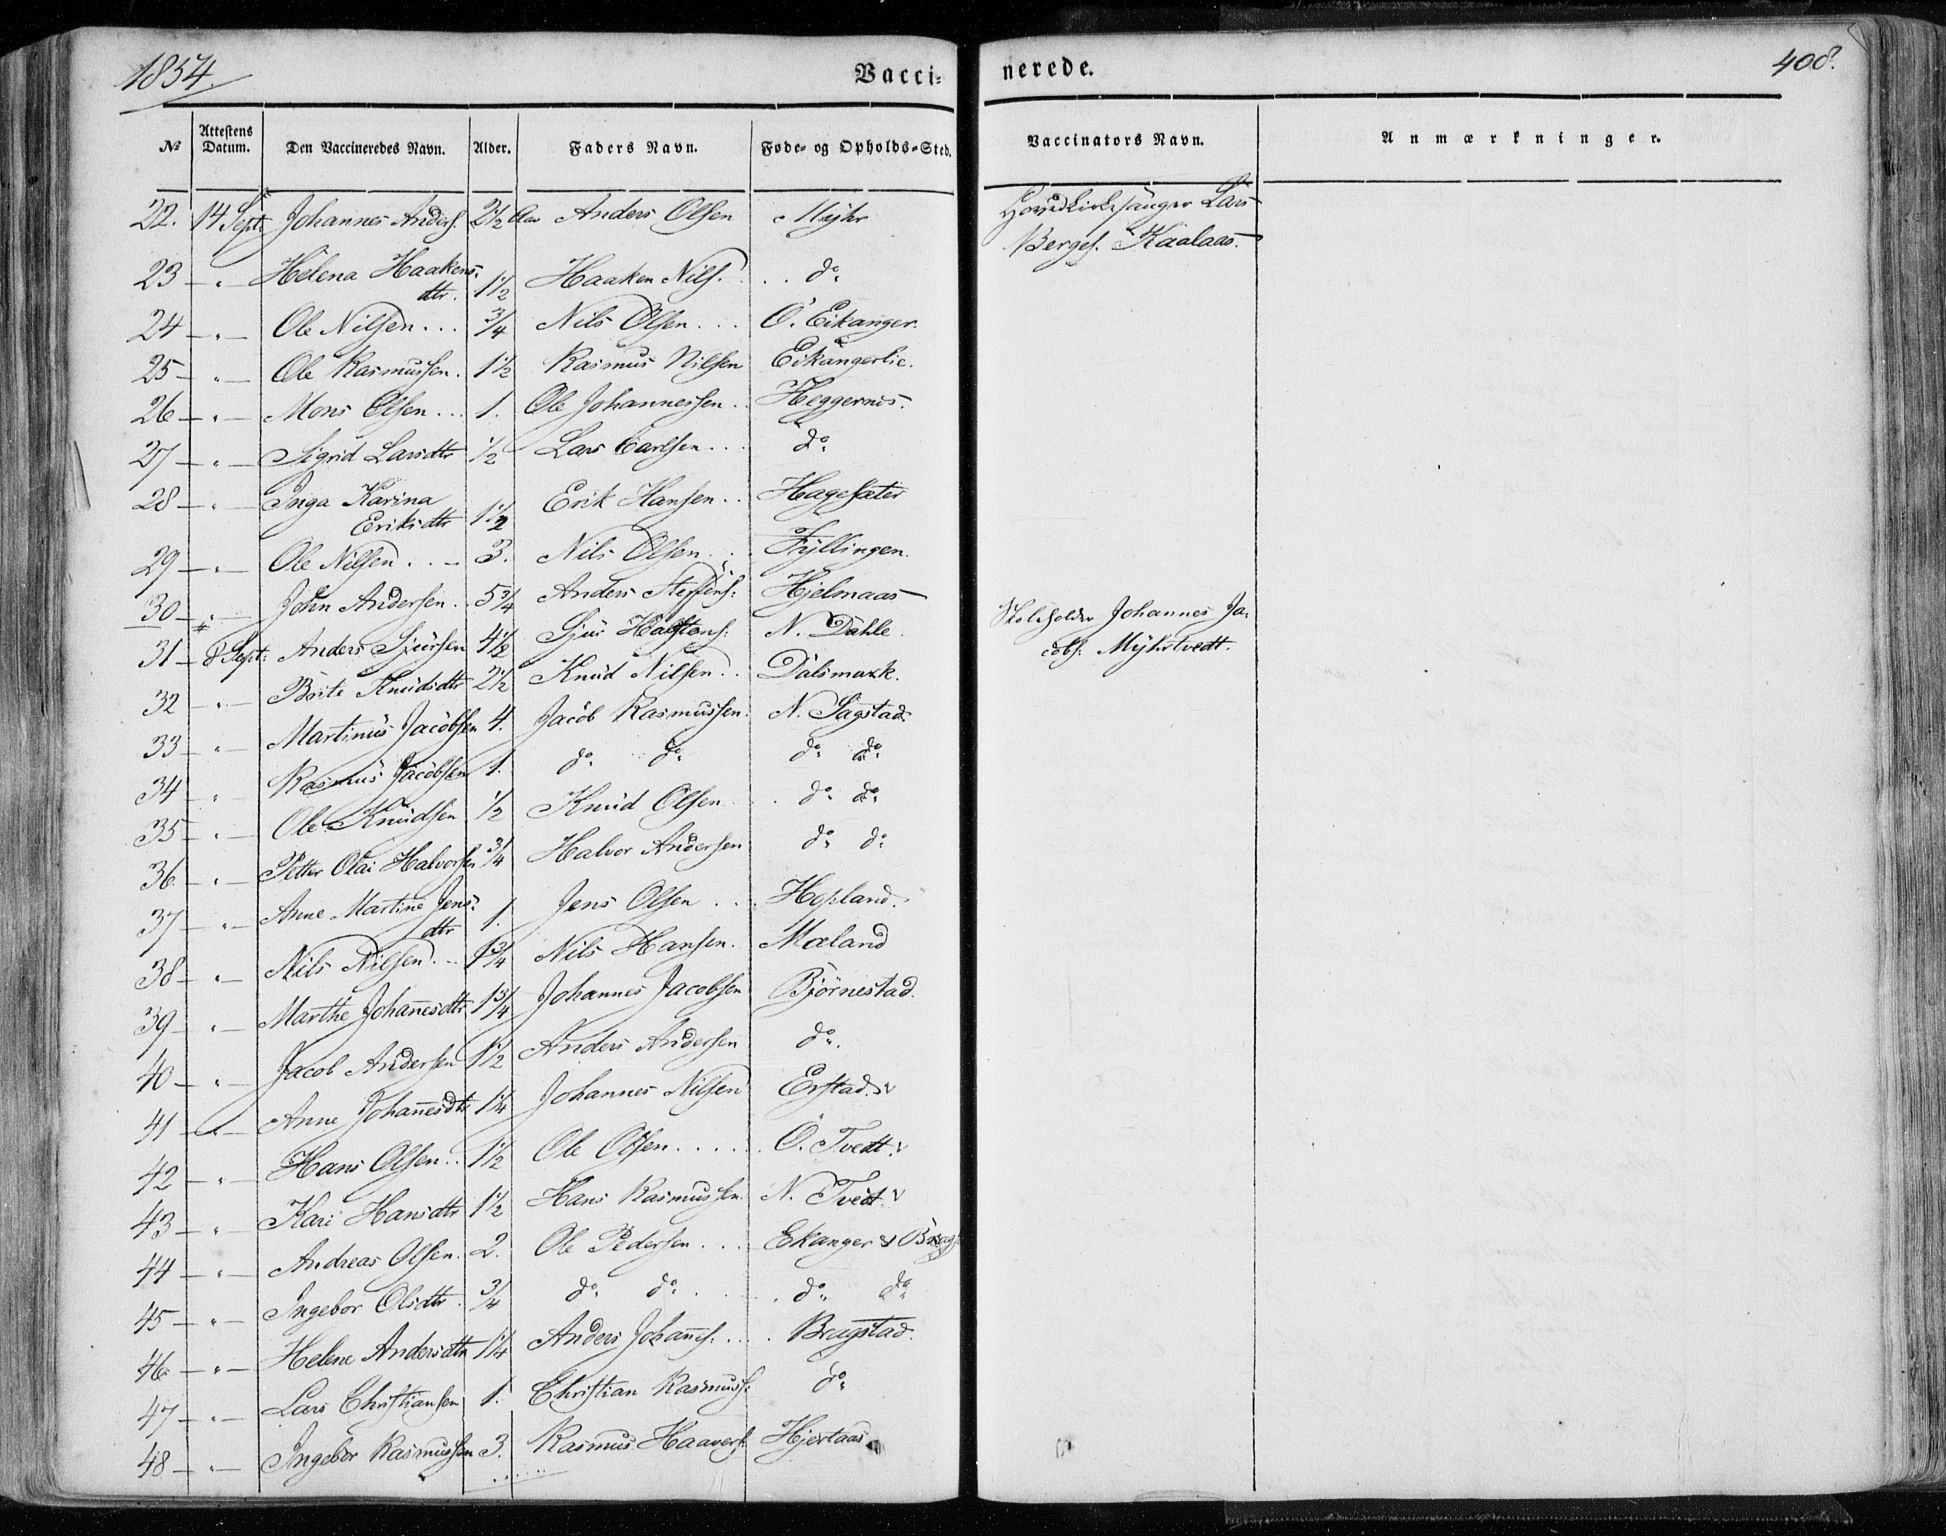 1854.
Vacci-
nerede.
408.
№ Attestens Datum. Den Vaccineredes Navn. Alder. Faders Navn. Føde- og Opholds-Sted. Vaccinators Navn. Anmærkninger.
22. 14 Sept: Johannes Anders. 2 1/2 Aar Anders Olsen Myhr Hovedkirkesanger Lars
Berges. Kaalaas.
23 — " Helena Haakens-
dtr. 1 1/2 Haaken Nils. do
24 — " — Ole Nilsen . . . 3/4 Nils Olsen . . . Ö. Eikanger.
25 — " — Ole Rasmussen. 1 1/2 Rasmus Nilsen Eikangerlie.
26 — " — Mons Olsen . . . 1. Ole Johannessen . . Heggernes.
27 — " — Sigrid Larsdtr 1/2 Lars Carlsen . . . do
28 — " — Inga Karina
Eriksdtr 1 1/2 Erik Hansen . . Hagesæter
29 — " — Ole Nilsen . . — 3. Nils Olsen . . . Fyllingen.
30 — " — John Andersen . . 5 3/4 Anders Steffens: Hjelmaas — Skoleholder Johannes Ja-
cobs: Myhrtvedt.
31 — 8 Sept: Anders Sjursen 4 1/2 Sjur N. Dahle.
32 — " — Brite Knudsdtr 2 1/2 Knud Nilsen . . Dalsmark.
33 — " — Martinus Jacobsen 4. Jacob Rasmussen. N. Sagstad.
34 — " — Rasmus Jacobsen 1. do do do do
35 — " — Ole Knudsen 1/2 Knud Olsen . . do do
36 — " — Petter Olai Halvorsen 3/4 Halvor Andersen do do
37 — " — Anne Martine Jens-
dtr 1. Jens Olsen . . . Hopland.
38 — " — Nils Nilsen . . . 1 3/4 Nils Hansen . . Mæland
39 — " — Marthe Johanesdtr 1 3/4 Johannes Jacobsen Bjørnestad.
40 — " — Jacob Andersen 1 1/2 Anders Andersen do.
41 — " — Anne Johanesdtr 1 1/4 Johannes Nilsen Erstad.
42 — " — Hans Olsen . . 1 1/2 Ole Olsen . . . . . Ö. Tvedt.
43 — " — Kari Hansdtr 1 1/2 Hans Rasmussen. N. Tvedt.
44 — " — Andreas Olsen. 2. Ole Pedersen . . . Ekanger
45 — " — Ingebor Olsdtr. 3/4 do do . . do do
46. — " — Helene Andersdtr 1 1/4 Anders Johanes: . . . Bragstad.
47 — " — Lars Christiansen 1. Christian Rasmuss: do
48 — " — Ingebor Rasmussen 3. Rasmus Haavers: Hjertaas